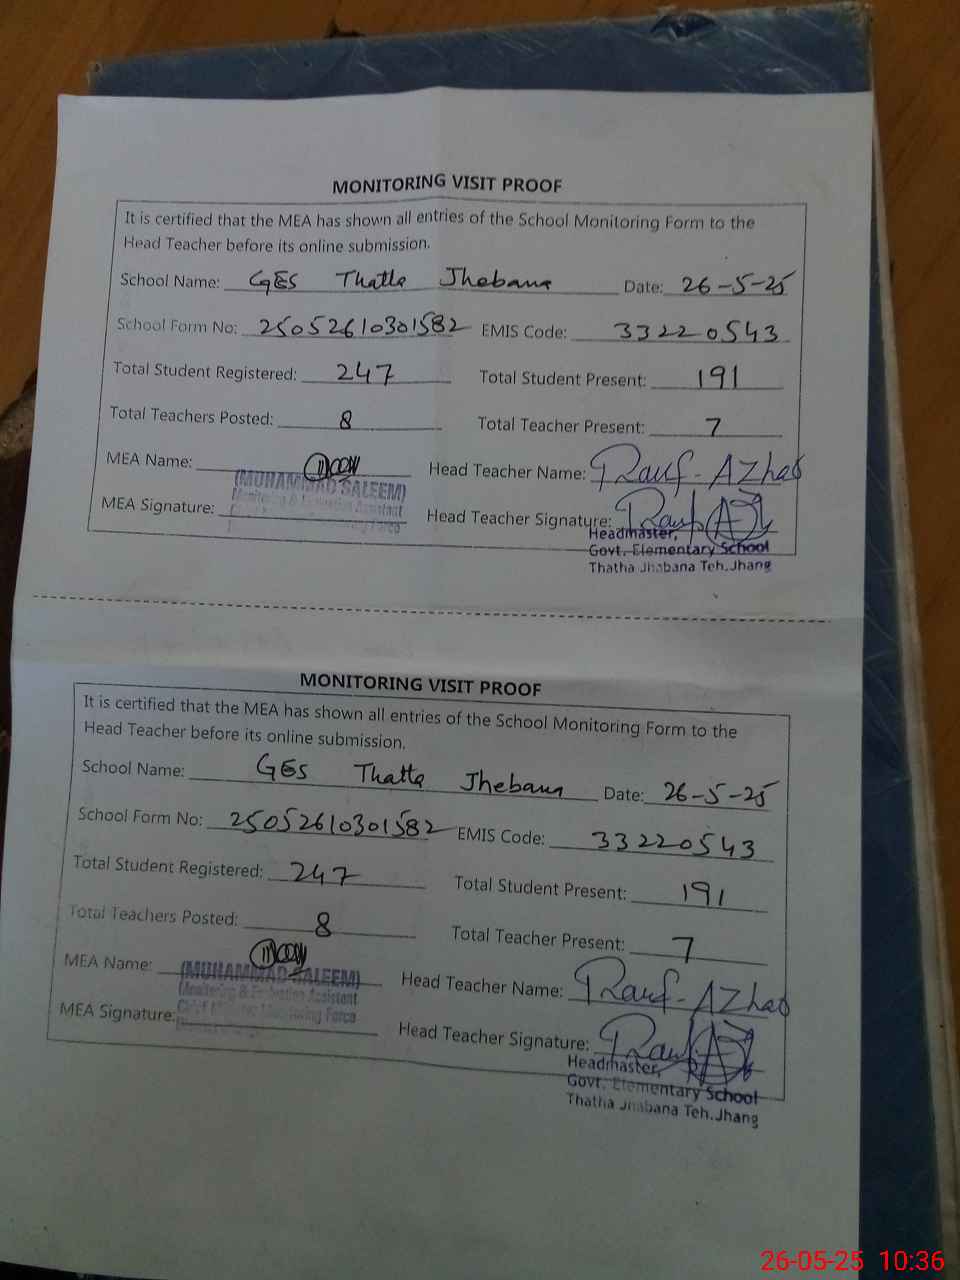 MONITORING VISIT PROOF
It is certified that the MEA has shown all entries of the School Monitoring Form to the
Head Teacher before its online submission.
School Name: GES Thatta Jhebana Date: 26-5-25
School Form No: 25052610301582 EMIS Code: 33220543
Total Student Registered: 247 Total Student Present: 191
Total Teachers Posted: 8 Total Teacher Present: 7
MEA Name: Head Teacher Name: Rauf-Azhar
(MUHAMMAD SALEEM)
Monitoring & Evaluation Assistant
MEA Signature: Head Teacher Signature: Rauf
Chief Minister Monitoring Force
Headmaster,
Govt. Elementary School
Thatha Jhabana Teh. Jhang
MONITORING VISIT PROOF
It is certified that the MEA has shown all entries of the School Monitoring Form to the
Head Teacher before its online submission.
School Name: GES Thatta Jhebana Date: 26-5-25
School Form No: 25052610301582 EMIS Code: 33220543
Total Student Registered: 247 Total Student Present: 191
Total Teachers Posted: 8 Total Teacher Present: 7
MEA Name: Head Teacher Name: Rauf-Azhar
(MUHAMMAD SALEEM)
Monitoring & Evaluation Assistant
Chief Minister Monitoring Force
MEA Signature: Head Teacher Signature: Rauf
Headmaster,
Govt. Elementary School
Thatha Jhabana Teh. Jhang
26-05-25 10:36